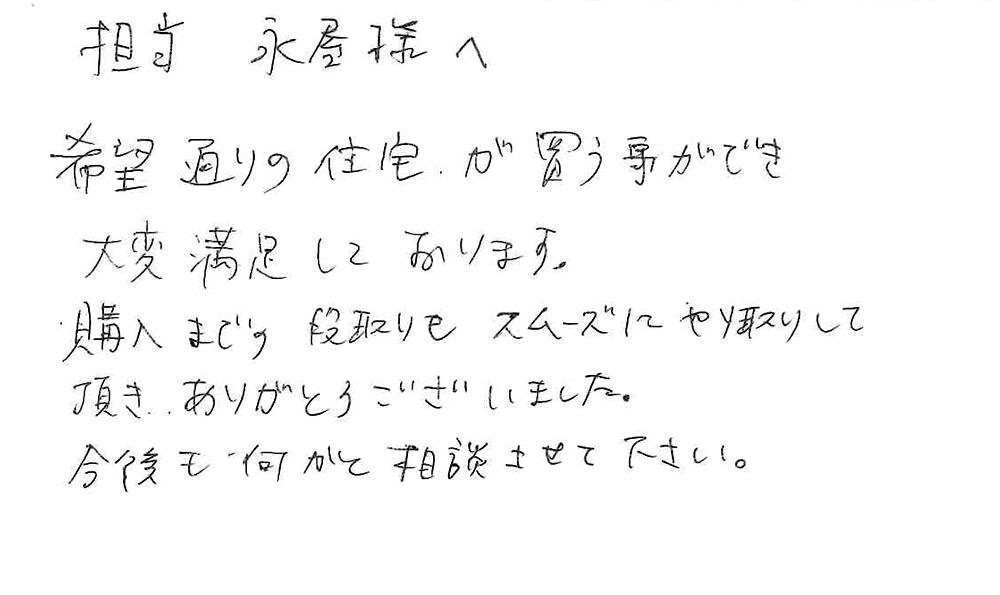 担当 永屋様へ
希望通りの住宅が買う事ができ
大変満足しております。
購入までの段取りも スムーズにやり取りして
頂き、ありがとうございました。
今後も何かと相談させて下さい。